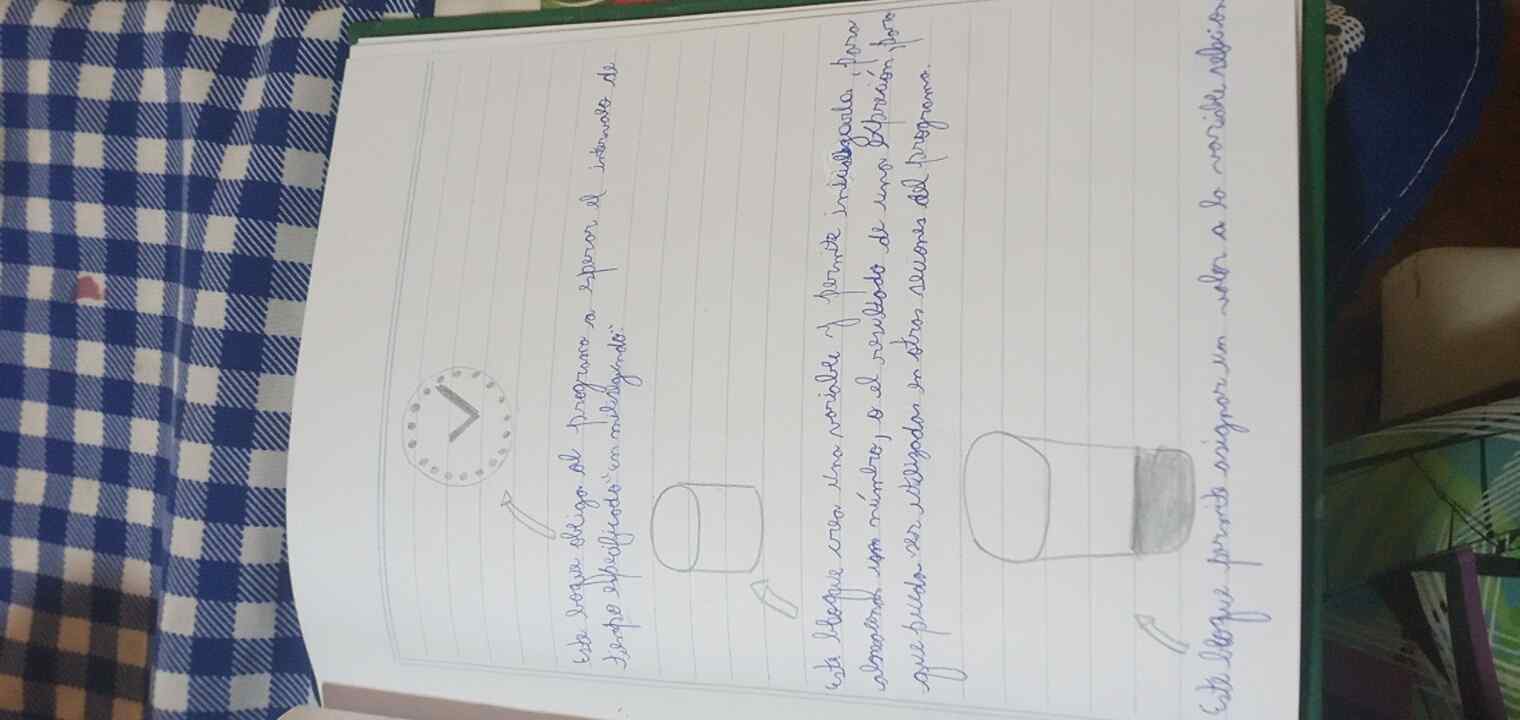 Este boque obliga al programa a esperar el intervalo de
tiempo especificado "en milisegúndo".
Este bloque crea una variable y permite inicializarla, para
almacenar un número, o el resultado de una expreción, para
que pueda ser utilizados en otras seciones del programa.
Este bloque permite asignar un valor a la variable relacion